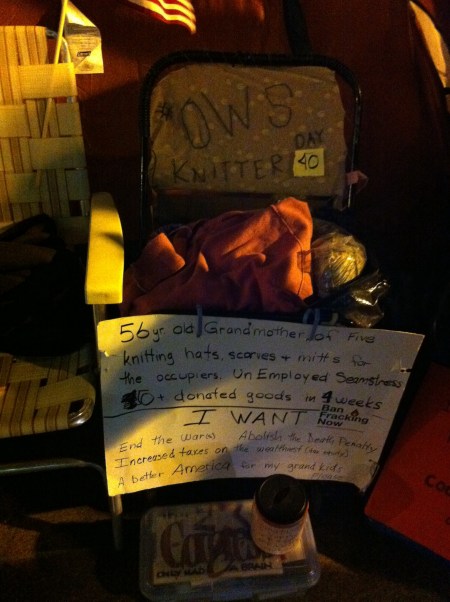 #OWS
KNITTER
DAY
40
56 yr. old Grandmother of Five
knitting hats, scarves + mitts for
the occupiers. UnEmployed Seamstress
+ donated goods in 4 weeks
Ban
Fracking
Now
I WANT
End the wars Abolish the Death Penalty
Increased taxes on the wealthiest
A better America for my grand kids
ONLY HAD A BRAIN